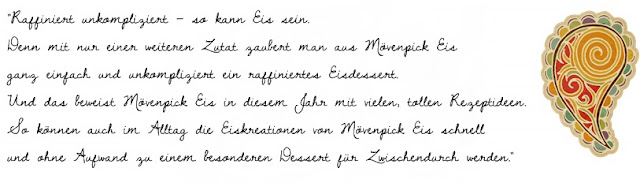 "Raffiniert unkompliziert – so kann Eis sein.
Denn mit nur einer weiteren Zutat zaubert man aus Mövenpick Eis
ganz einfach und unkompliziert ein raffiniertes Eisdessert.
Und das beweist Mövenpick Eis in diesem Jahr mit vielen, tollen Rezeptideen.
So können auch im Alltag die Eiskreationen von Mövenpick Eis schnell
und ohne Aufwand zu einem besonderen Dessert für Zwischendurch werden."